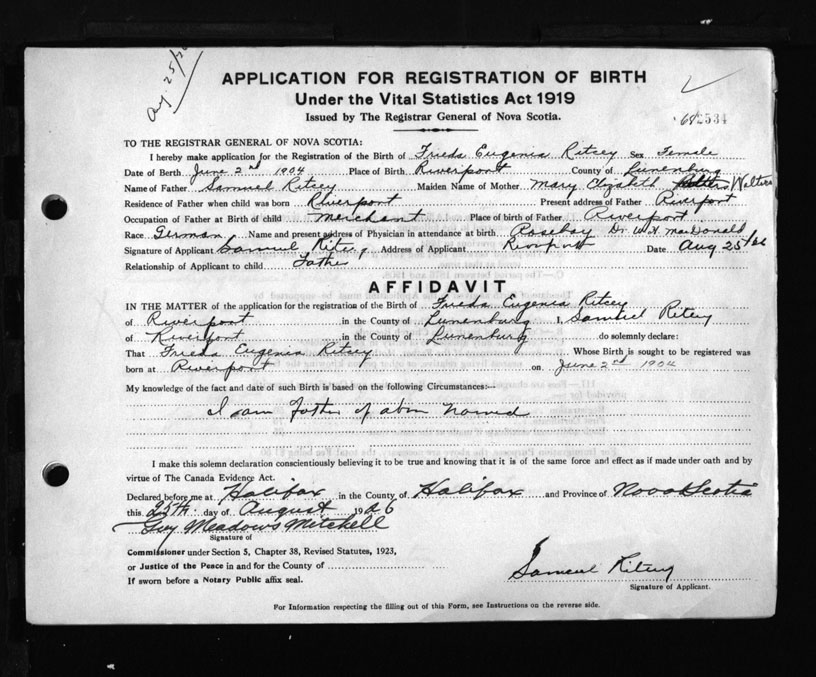 Aug 25/26
APPLICATION FOR REGISTRATION OF BIRTH
Under the Vital Statistics Act 1919
Issued by The Registrar General of Nova Scotia.
682534
TO THE REGISTRAR GENERAL OF NOVA SCOTIA:
I hereby make application for the Registration of the Birth of Frieda Eugenia Ritcey Sex Female
Date of Birth June 2nd 1904 Place of Birth Riverport County of Lunenburg
Name of Father Samuel Ritcey Maiden Name of Mother Mary Elizabeth Walters
Residence of Father when child was born Riverport Present address of Father Riverport
Occupation of Father at Birth of child Merchant Place of birth of Father Riverport
Race German Name and present address of Physician in attendance at birth Rosebay Dr W H MacDonald
Signature of Applicant Samuel Ritcey Address of Applicant Riverport Date Aug 25/26
Relationship of Applicant to child Father
AFFIDAVIT
IN THE MATTER of the application for the registration of the Birth of Frieda Eugenia Ritcey
of Riverport in the County of Lunenburg I, Samuel Ritcey
of Riverport in the County of Lunenburg do solemnly declare:
That Frieda Eugenia Ritcey Whose Birth is sought to be registered was
born at Riverport on June 2nd 1904
My knowledge of the fact and date of such Birth is based on the following Circumstances:—
I am Father of above named
I make this solemn declaration conscientiously believing it to be true and knowing that it is of the same force and effect as if made under oath and by
virtue of The Canada Evidence Act.
Declared before me at Halifax in the County of Halifax and Province of Nova Scotia
this 25th day of August 1926
Guy Meadows Mitchell
Signature of
Commissioner under Section 5, Chapter 38, Revised Statutes, 1923,
or Justice of the Peace in and for the County of
If sworn before a Notary Public affix seal.
Samuel Ritcey
Signature of Applicant.
For Information respecting the filling out of this Form, see Instructions on the reverse side.